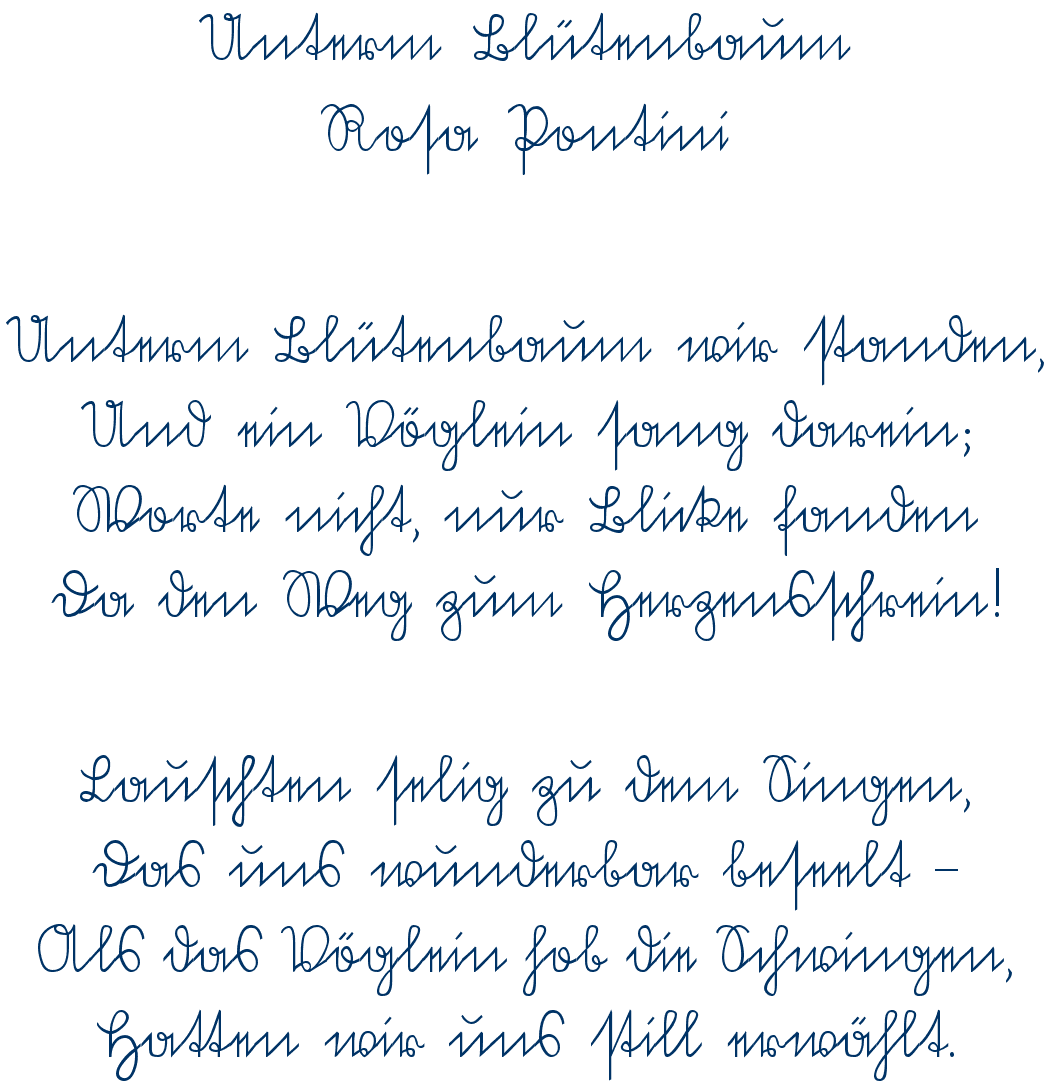 Unterm Blütenbaum
Rosa Pontini
Unterm Blütenbaum wir standen,
Und ein Vöglein sang darein;
Worte nicht, nur Blicke fanden
Da den Weg zum Herzensschrein!
Lauschten selig zu dem Singen,
Das uns wunderbar beseelt –
Als das Vöglein hob die Schwingen,
Hatten wir uns still erwählt.